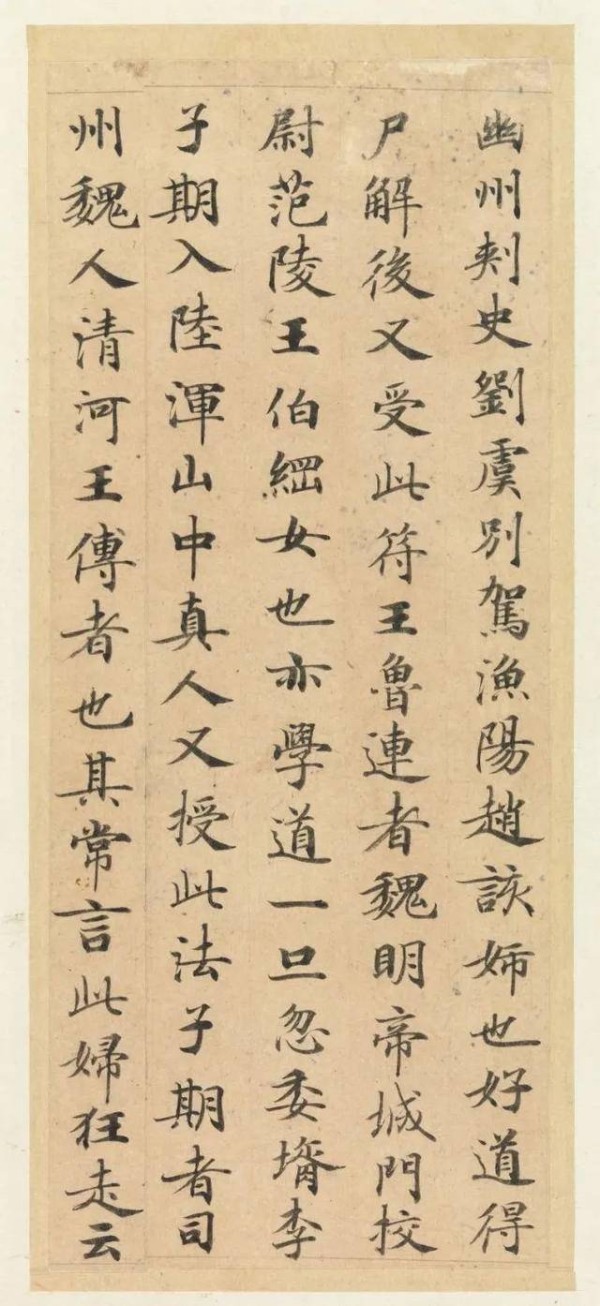 幽州刾史劉虞別駕漁陽趙該姉也好道得
尸解後又受此符王魯連者魏明帝城門校
尉范陵王伯綱女也亦學道一旦忽委壻李
子期入陸渾山中真人又授此法子期者司
州魏人清河王傅者也其常言此婦狂走云